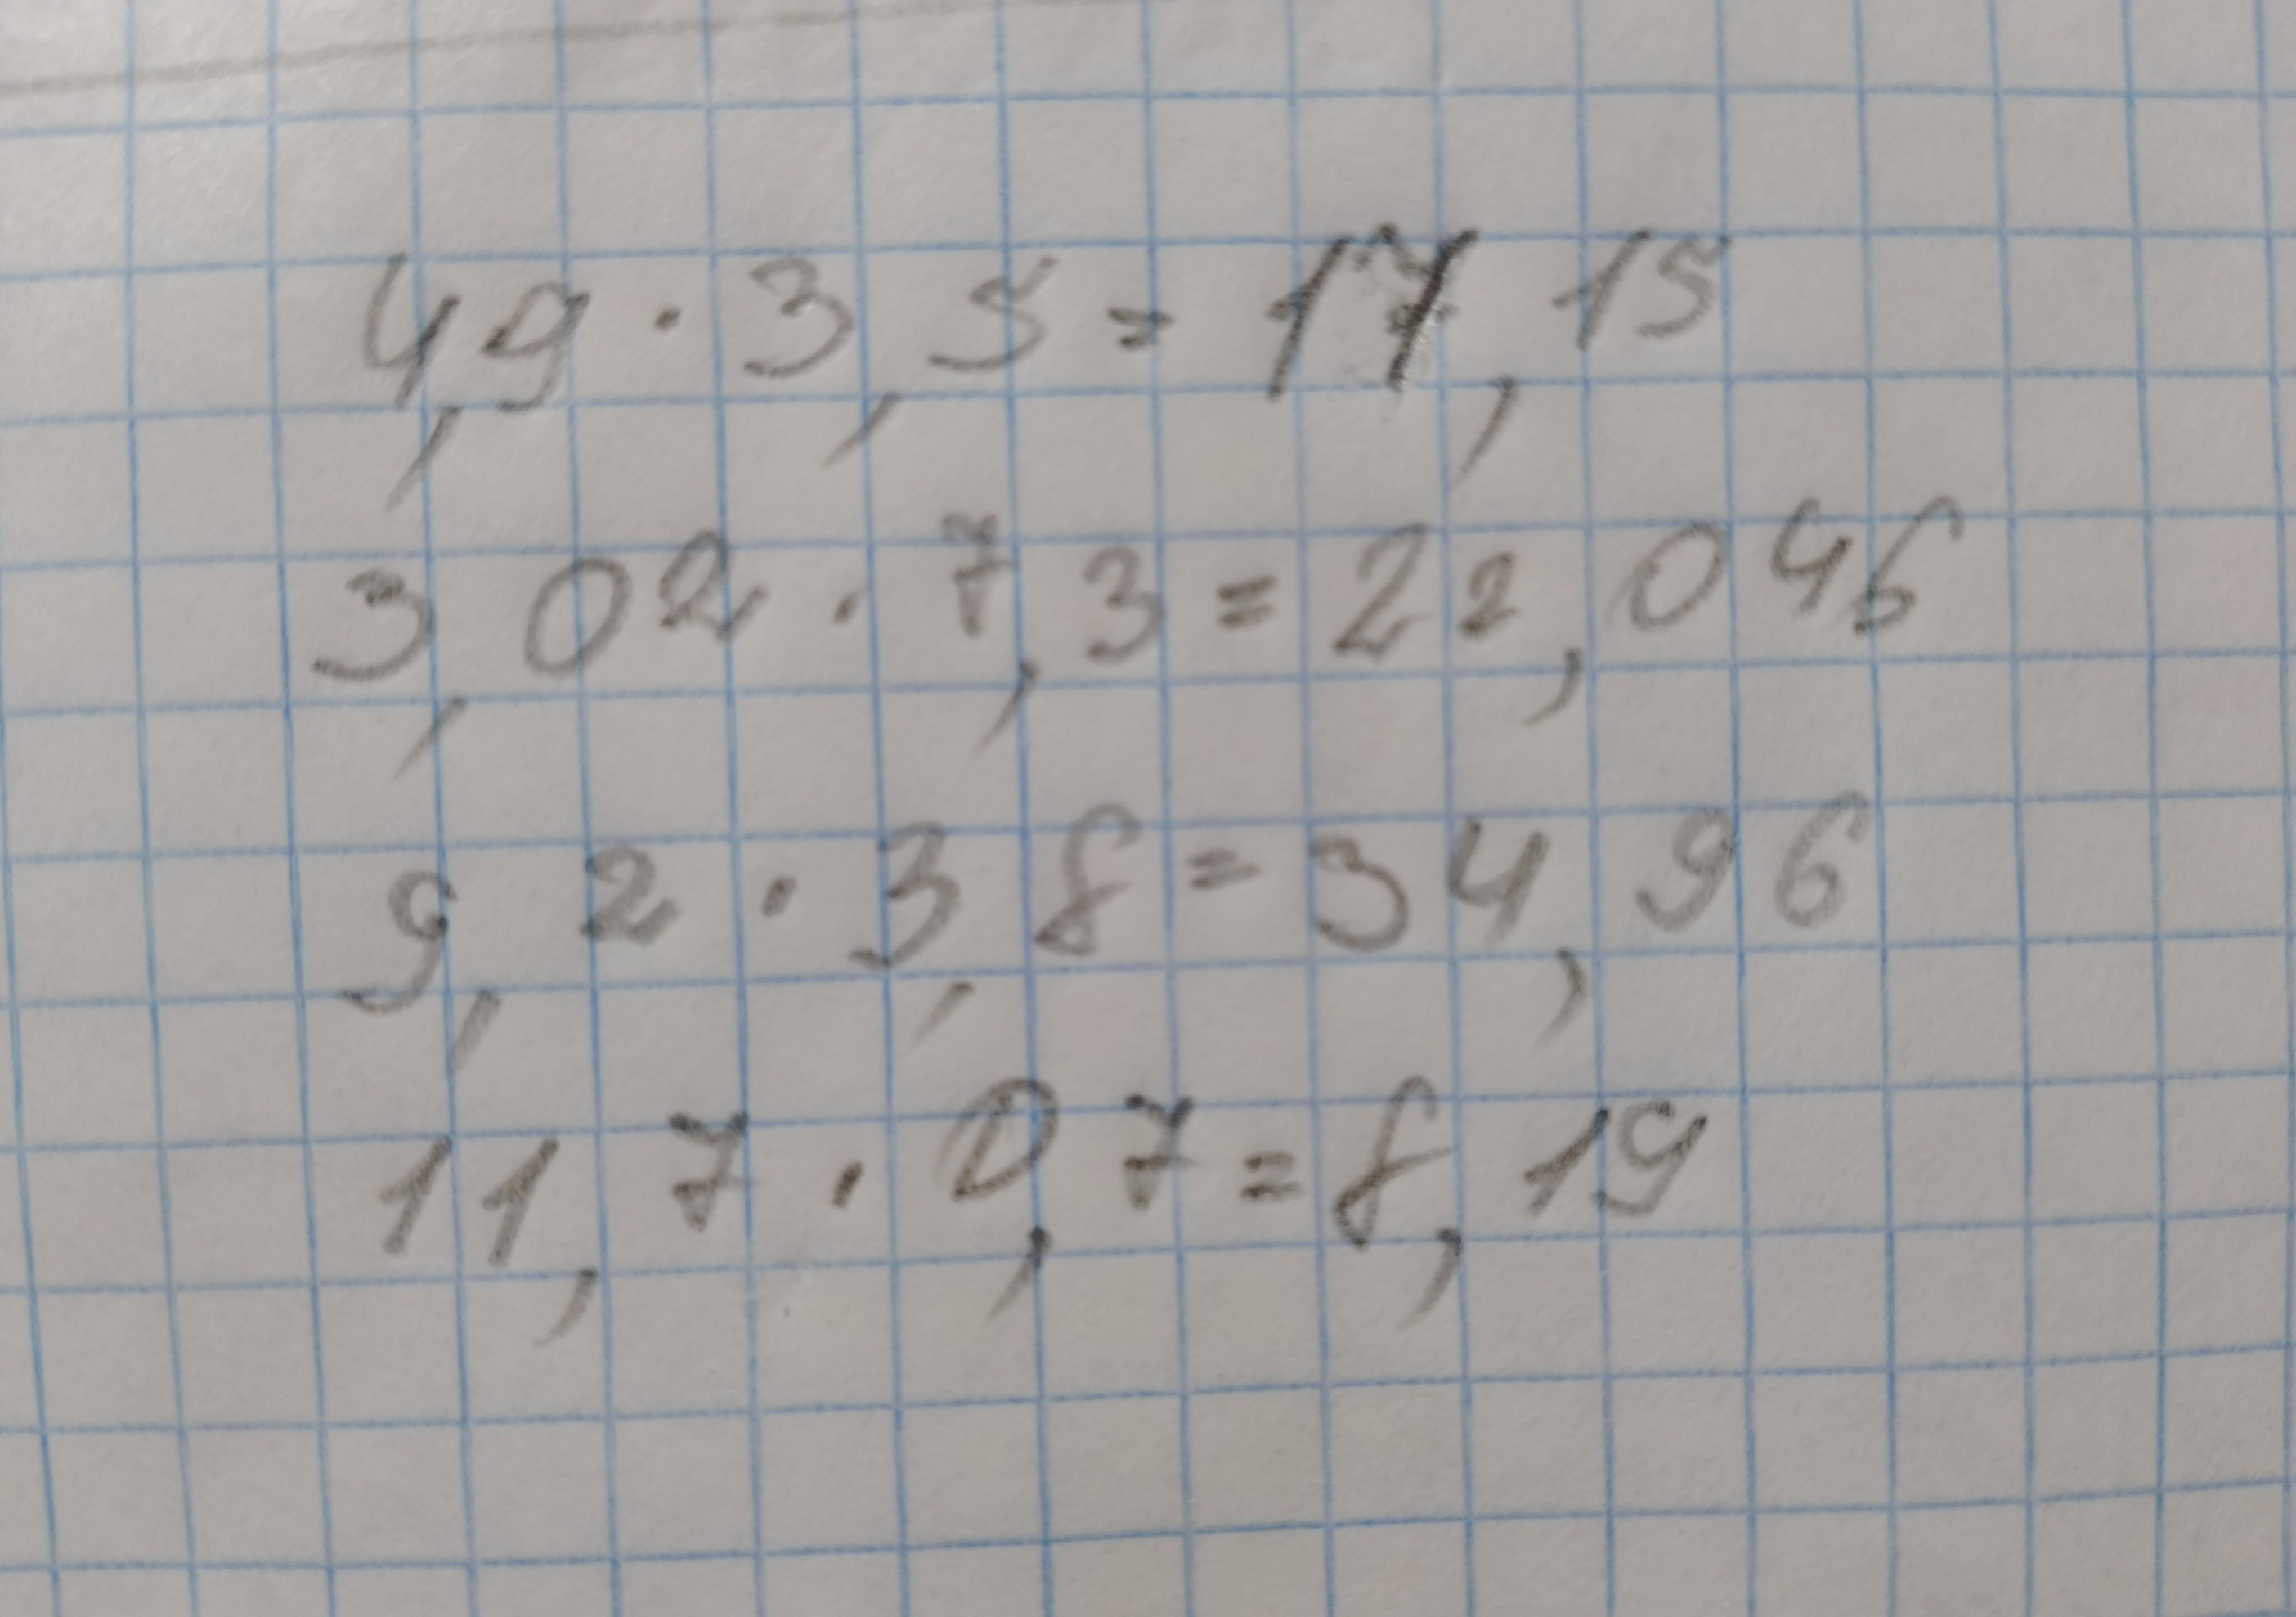 4,9 · 3,5 = 17,15
3,02 · 7,3 = 22,046
9,2 · 3,8 = 34,96
11,7 · 0,7 = 8,19